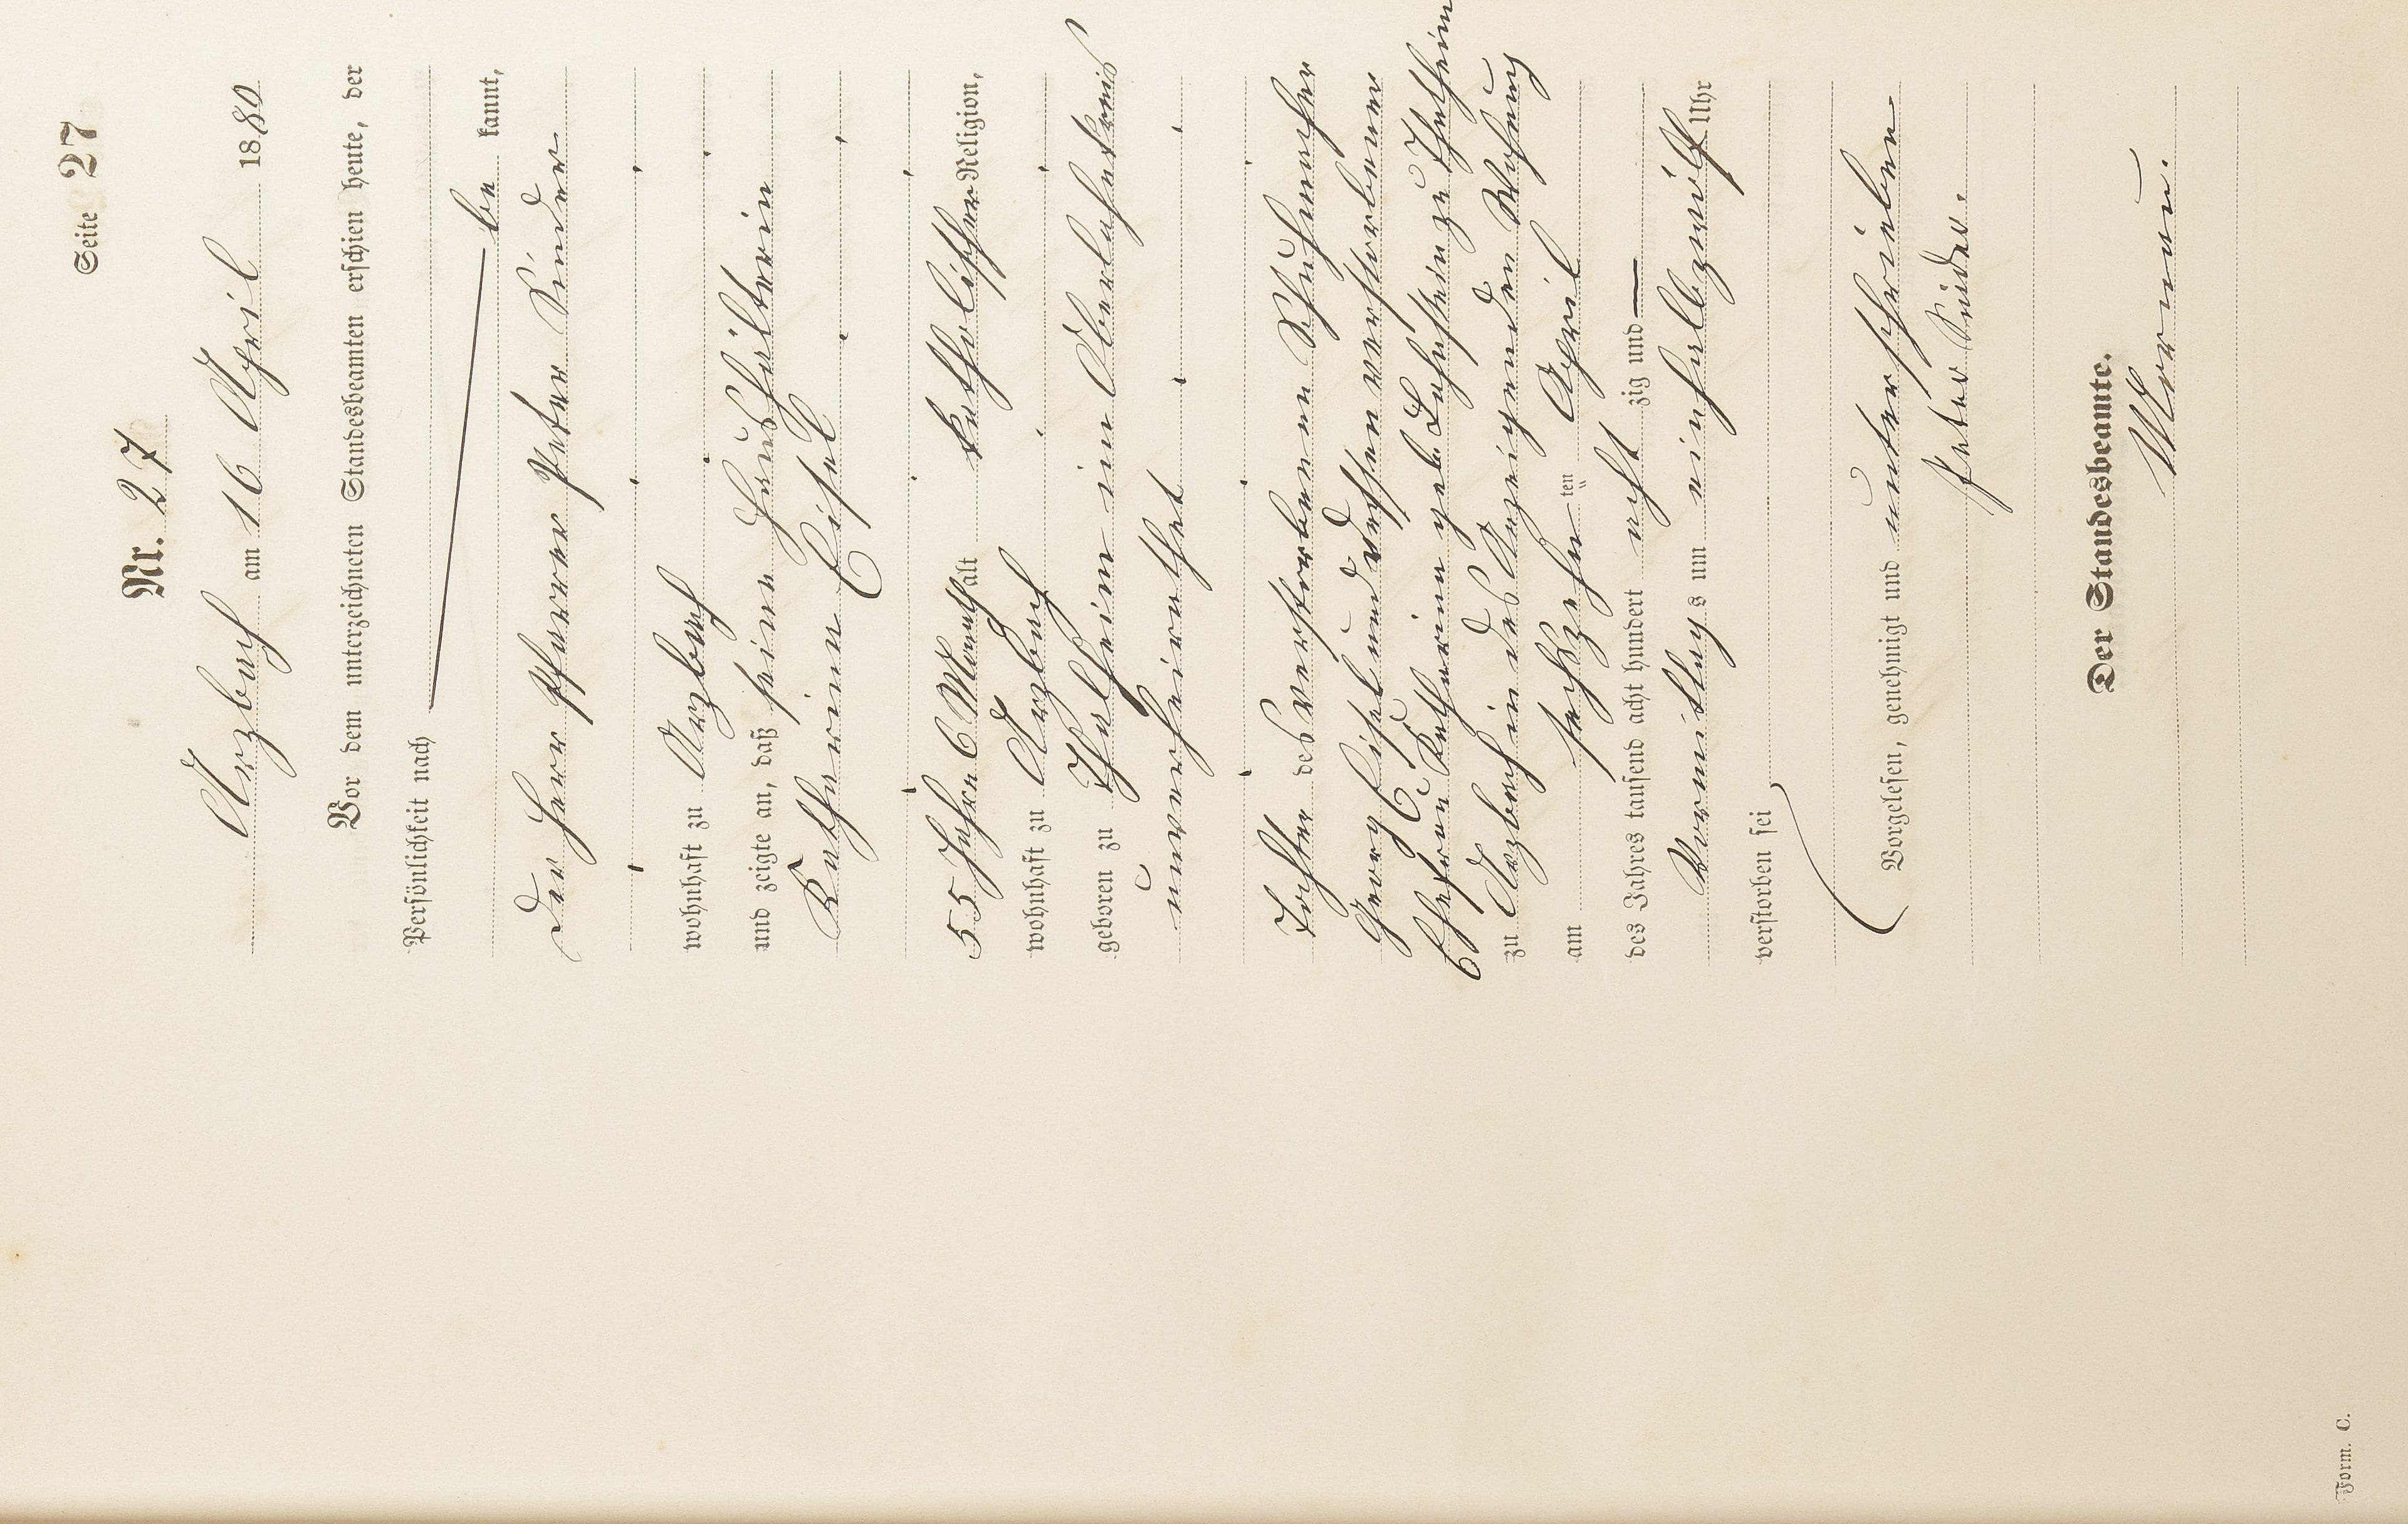 Seite 27
Nr. 27
Arzbach am 16 April 1880
Vor dem unterzeichneten Standesbeamten erschien heute, der
Persönlichkeit nach
be kannt,
der Herr Pfarrer Peter Sinder
wohnhaft zu Arzbach
und zeigte an, daß seine Haushälterin
Katharina Eisel
55 Jahre 6 Monath alt katholischer Religion,
wohnhaft zu Arzbach
geboren zu Thalheim in Oberlahnkreis
unverheirathet
Tochter des verstorbenen Schuhmacher
Georg Eisel und dessen verstorbenen
Ehefrau Katharina geb. zu Thalheim
zu Arzbach in des Anzeigenden Wohnung
am sechszehn ten April
des Jahres tausend acht hundert acht zig und
Vormittags um einhalbzwölf Uhr
verstorben sei
Vorgelesen, genehmigt und unterschrieben
Peter Sinder.
Der Standesbeamte.
Form. C.